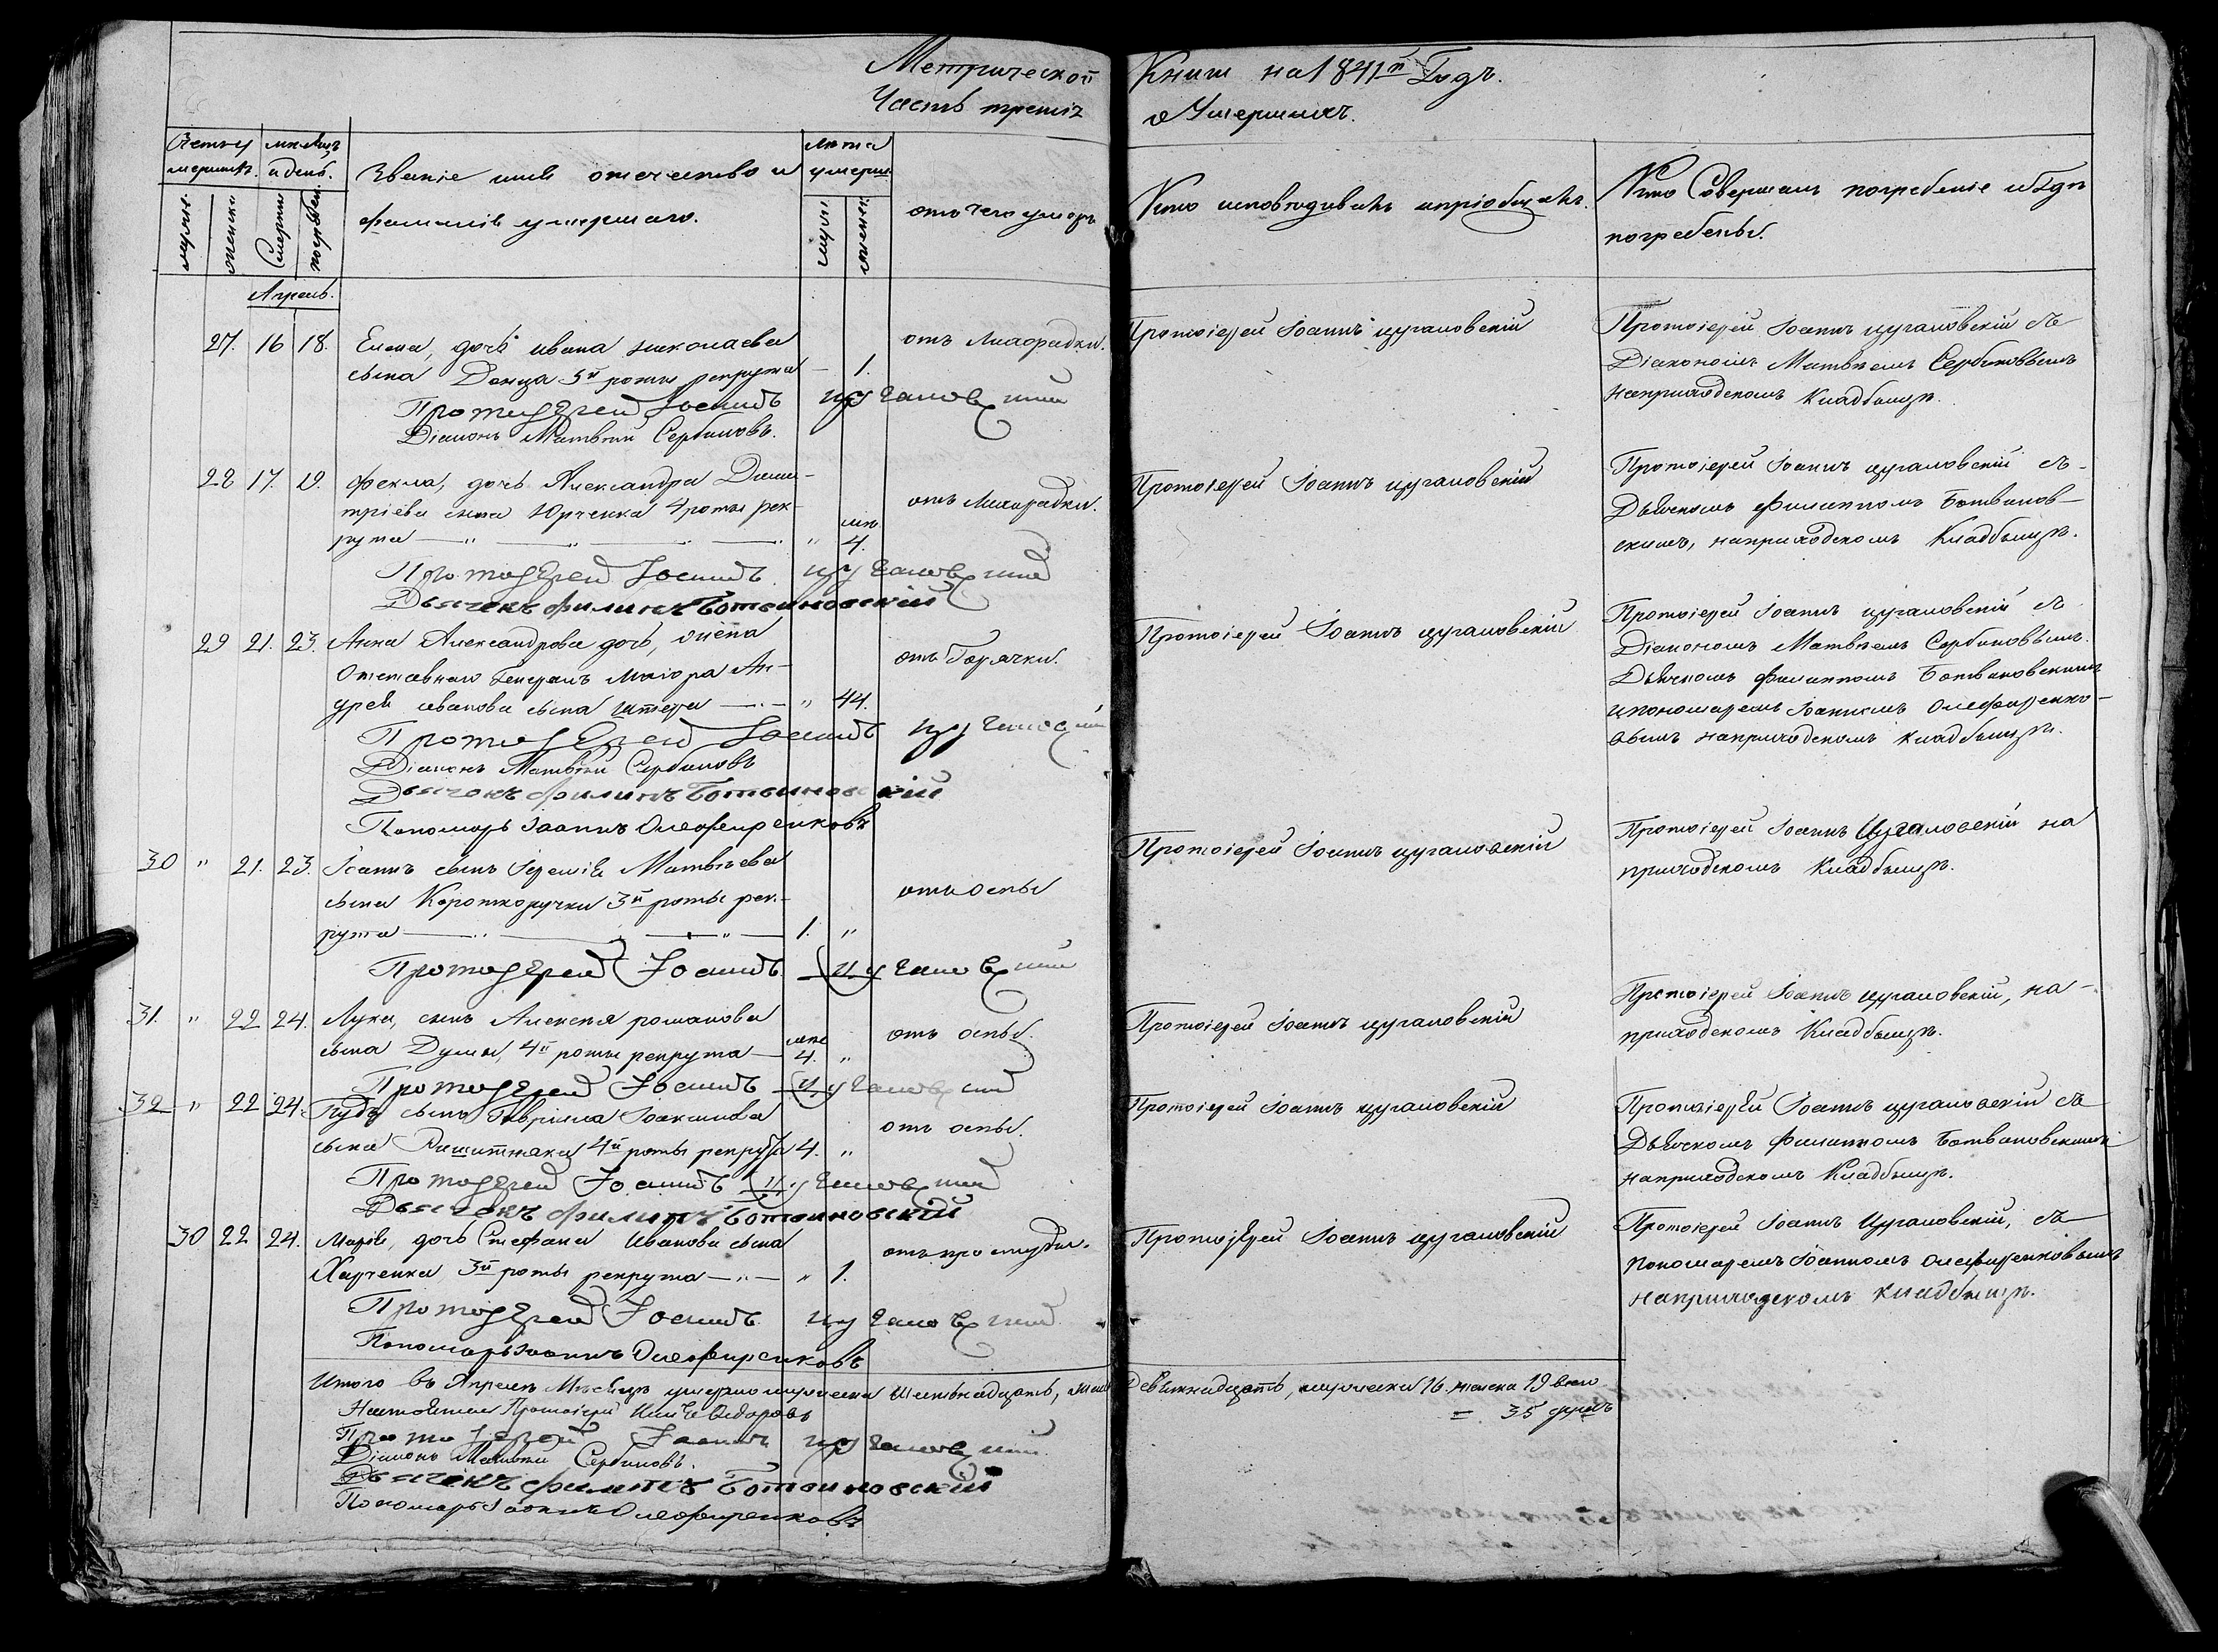 Метрической Книги на 1841й Годъ.
Часть третія о Умершихъ.
Счетъ умершихъ.
мѣсяцъ и день.
Званіе имя отечество и
фамилія умершаго.
лѣта умерш.
отъ чего умеръ
Кто исповѣдывалъ и пріобщалъ.
Кто Совершалъ погребеніе и гдѣ
погребены.
мужеск.
женски
Смерти
погребен.
мужи
женск
Апрель.
27. 16 18. Елена, дочь Ивана Николаева
сына Донца 3й роты рекрута — 1.
отъ лихорадки.
Протоіерей Іоаннъ Цугаловскій
Діаконъ Матвѣй Сербиновъ.
Протоіерей Іоаннъ Цугаловскій
Протоіерей Іоаннъ Цугаловскій съ
Діакономъ Матвѣемъ Сербиновымъ
на приходскомъ кладбищѣ.
28 17. 19. Фекла, дочь Александра Дми-
тріева сына Юрченка 4 роты рек-
рута — " — " — " — " 4.
отъ лихорадки.
Протоіерей Іоаннъ Цугаловскій
Дьячекъ Филипъ Ботвиновскій
Протоіерей Іоаннъ Цугаловскій
Протоіерей Іоаннъ Цугаловскій съ
Дьячкомъ Филиппомъ Ботвинов-
скимъ, на приходскомъ кладбищѣ.
29 21. 23. Анна Александрова дочь, жена
Отставнаго Генералъ Маіора Ан-
дрея Иванова сына Штера — " — " 44.
отъ Горячки.
Протоіерей Іоаннъ Цугаловскій
Діаконъ Матвѣй Сербиновъ
Дьячекъ Филипъ Ботвиновскій
Пономарь Іоаннъ Олефиренковъ
Протоіерей Іоаннъ Цугаловскій
Протоіерей Іоаннъ Цугаловскій съ
Діакономъ Матвѣемъ Сербиновымъ.
Дьячкомъ Филиппомъ Ботвиновскимъ
и пономаремъ Іоанномъ Олефиренко-
вымъ на приходскомъ кладбищѣ.
30 " 21. 23. Іоаннъ сынъ Іереміи Матвѣева
сына Короткоручки 3й роты рек-
рута — " — " — " — 1. "
отъ оспы
Протоіерей Іоаннъ Цугаловскій
Протоіерей Іоаннъ Цугаловскій
Протоіерей Іоаннъ Цугаловскій на
приходскомъ кладбищѣ.
31. " 22 24. Лука, сынъ Алексѣя Романова
сына Думы, 4й роты рекрута — 4. "
отъ оспы.
Протоіерей Іоаннъ Цугаловскій
Протоіерей Іоаннъ Цугаловскій
Протоіерей Іоаннъ Цугаловскій, на-
приходскомъ кладбищѣ.
32 " 22 24. сынъ Гавріила
сына 4й роты рекрута 4. "
отъ оспы.
Протоіерей Іоаннъ Цугаловскій
Дьячекъ Филипъ Ботвиновскій
Протоіерей Іоаннъ Цугаловскій
Протоіерей Іоаннъ Цугаловскій съ
Дьячкомъ Филиппомъ Ботвиновскимъ
на приходскомъ кладбищѣ.
30 22 24. Марія, дочь Стефана Иванова сына
Харченка 3й роты рекрута — " — " 1.
отъ простуды.
Протоіерей Іоаннъ Цугаловскій
Пономарь Іоаннъ Олефиренковъ
Протоіерей Іоаннъ Цугаловскій
Протоіерей Іоаннъ Цугаловскій, съ
пономаремъ Іоанномъ Олефиренковымъ
на приходскомъ кладбищѣ.
Итого въ Апрелѣ Мѣсяцѣ умерло мужеска Шестьнадцать, жен Девятнадцать, мужеска 16. женска 19 всего
= 35 душъ
Протоіерей
Протоіерей Іоаннъ Цугаловскій
Діаконъ Матвѣй Сербиновъ.
Дьячекъ Филипъ Ботвиновскій
Пономарь Іоаннъ Олефиренковъ